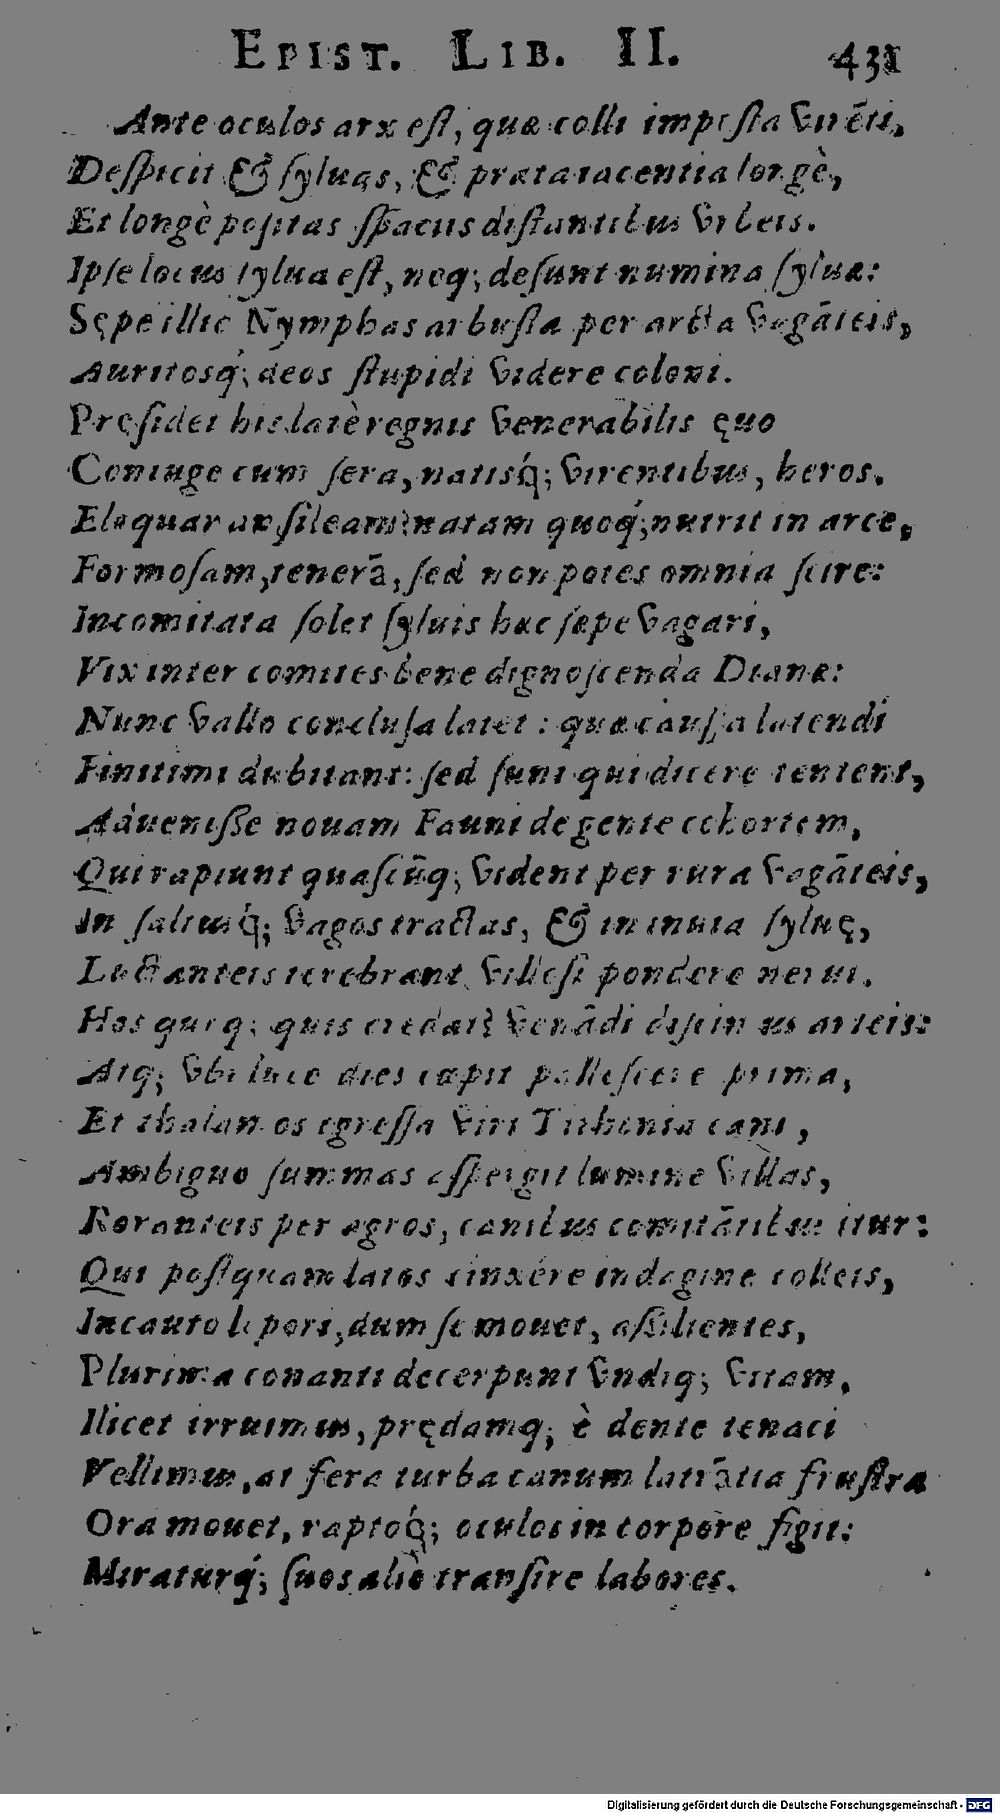 EPIST. LIB. II. 431
Ante oculos arx est, quæ colli imposta virēti,
Despicit & syluas, & prata iacentia longè,
Et longè positas spaciis distantibus vrbeis.
Ipse locus sylua est, neq; desunt numina syluæ:
Sępe illic Nymphas arbusta per arcta vagāteis,
Auritosq́; deos stupidi videre coloni.
Pręsidet his latè regnis venerabilis ęuo
Coniuge cum sera, natisq́; virentibus, heros.
Eloquar an sileam? natam quoq́; nutrit in arce,
Formosam, tenerā, sed non potes omnia scire:
Incomitata solet syluis hæc sæpe vagari,
Vix inter comites bene dignoscenda Dianæ:
Nunc vallo conclusa latet: quæ caussa latendi
Finitimi dubitant: sed sunt qui dicere tentent,
Aduenisse nouam Fauni de gente cohortem,
Qui rapiunt quascūq; vident per rura vagāteis,
In saltusq́; vagos tractas, & in inuia syluę,
Luctanteis terebrant villosi pondere nerui.
Hos quoq; quis credat? venādi discimus arteis:
Atq; vbi luce dies cœpit pallescere prima,
Et thalamos egressa viri Tithonia cani,
Ambiguo summas aspergit lumine villas,
Roranteis per agros, canibus comitātibus itur:
Qui postquam latos cinxére indagine colleis,
Incauto lepori, dum se mouet, assilientes,
Plurima conanti decerpunt vndiq; vitam.
Ilicet irruimus, prędamq; è dente tenaci
Vellimus, at fera turba canum latrātia frustra
Ora mouet, raptoq́; oculos in corpore figit:
Miraturq́; suos aliò transire labores.
Digitalisierung gefördert durch die Deutsche Forschungsgemeinschaft - DFG